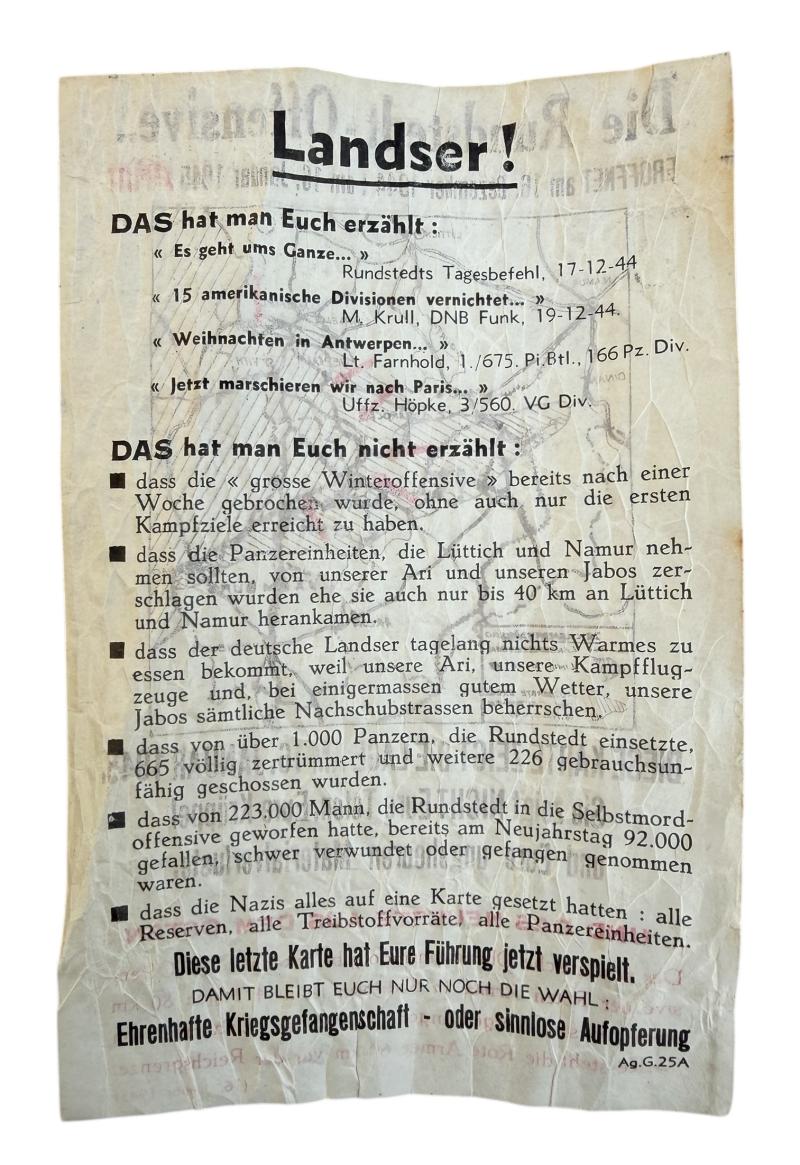 Landser!
DAS hat man Euch erzählt :
« Es geht ums Ganze... »
Rundstedts Tagesbefehl, 17-12-44
« 15 amerikanische Divisionen vernichtet... »
M. Krull, DNB Funk, 19-12-44.
« Weihnachten in Antwerpen... »
Lt. Farnhold, 1./675. Pi.Btl., 166 Pz. Div.
« Jetzt marschieren wir nach Paris... »
Uffz. Höpke, 3/560. VG Div.
DAS hat man Euch nicht erzählt :
■ dass die « grosse Winteroffensive » bereits nach einer
Woche gebrochen wurde, ohne auch nur die ersten
Kampfziele erreicht zu haben.
■ dass die Panzereinheiten, die Lüttich und Namur neh-
men sollten, von unserer Ari und unseren Jabos zer-
schlagen wurden ehe sie auch nur bis 40 km an Lüttich
und Namur herankamen.
■ dass der deutsche Landser tagelang nichts Warmes zu
essen bekommt, weil unsere Ari, unsere Kampfflug-
zeuge und, bei einigermassen gutem Wetter, unsere
Jabos sämtliche Nachschubstrassen beherrschen.
■ dass von über 1.000 Panzern, die Rundstedt einsetzte,
665 völlig zertrümmert und weitere 226 gebrauchsun-
fähig geschossen wurden.
■ dass von 223.000 Mann, die Rundstedt in die Selbstmord-
offensive geworfen hatte, bereits am Neujahrstag 92.000
gefallen, schwer verwundet oder gefangen genommen
waren.
■ dass die Nazis alles auf eine Karte gesetzt hatten : alle
Reserven, alle Treibstoffvorräte, alle Panzereinheiten.
Diese letzte Karte hat Eure Führung jetzt verspielt.
DAMIT BLEIBT EUCH NUR NOCH DIE WAHL :
Ehrenhafte Kriegsgefangenschaft - oder sinnlose Aufopferung
Ag.G.25A